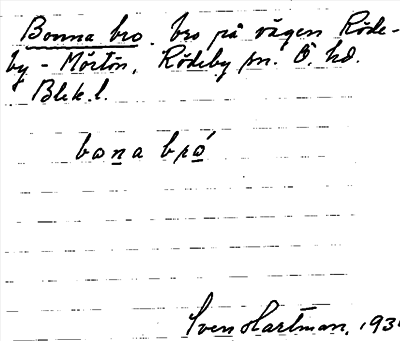 Bonna bro. bro på vägen Röde-
by - Mörtön, Rödeby sn. Ö. hd.
Blek. l.
bona bró
Sven Hartman, 193